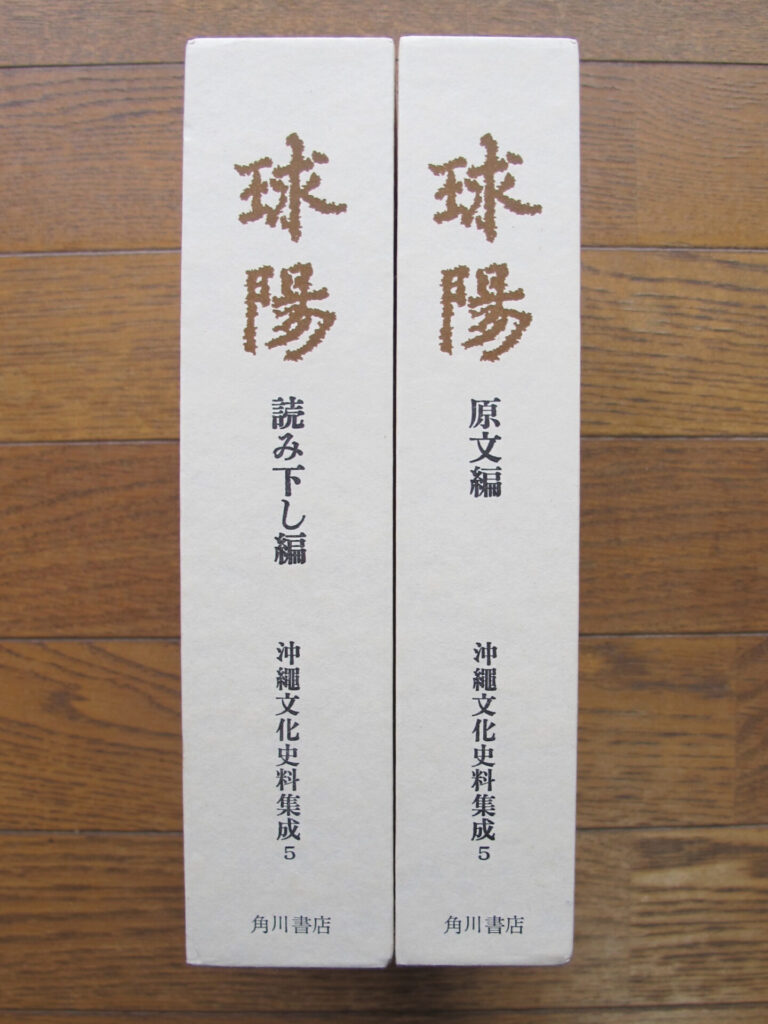 球陽
原文編
沖繩文化史料集成5
角川書店
球陽
読み下し編
沖繩文化史料集成5
角川書店